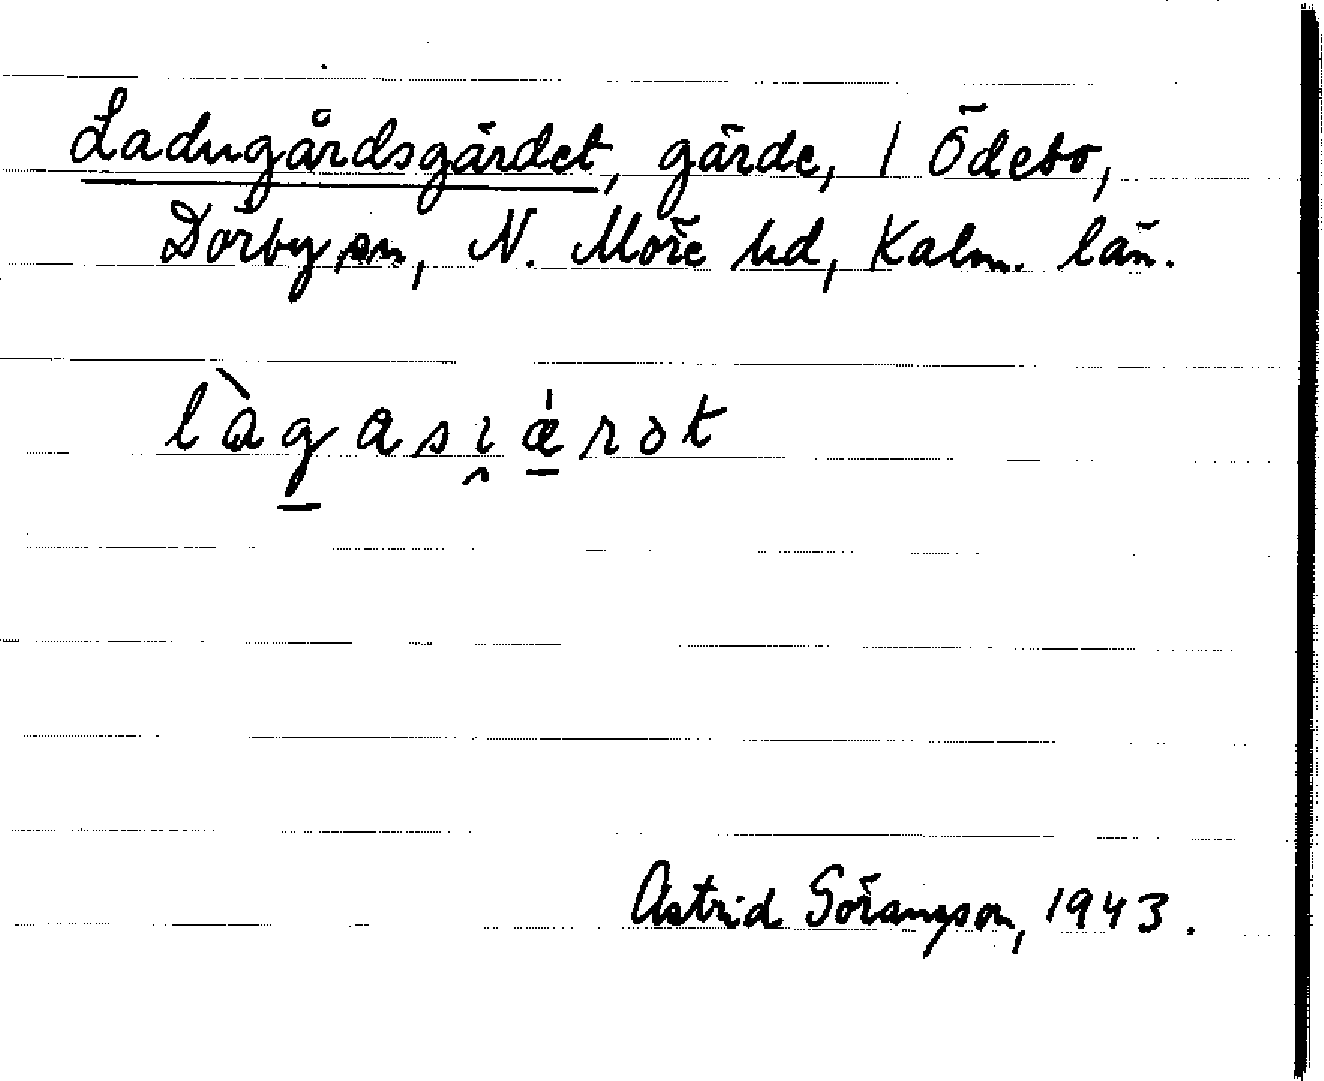 Ladugårdsgärdet, gärde, 1 Ödebo,
Dörby sn, N. Möre hd, Kalm. län.
làgası̯ǽ̱rət
Astrid Göransson, 1943.